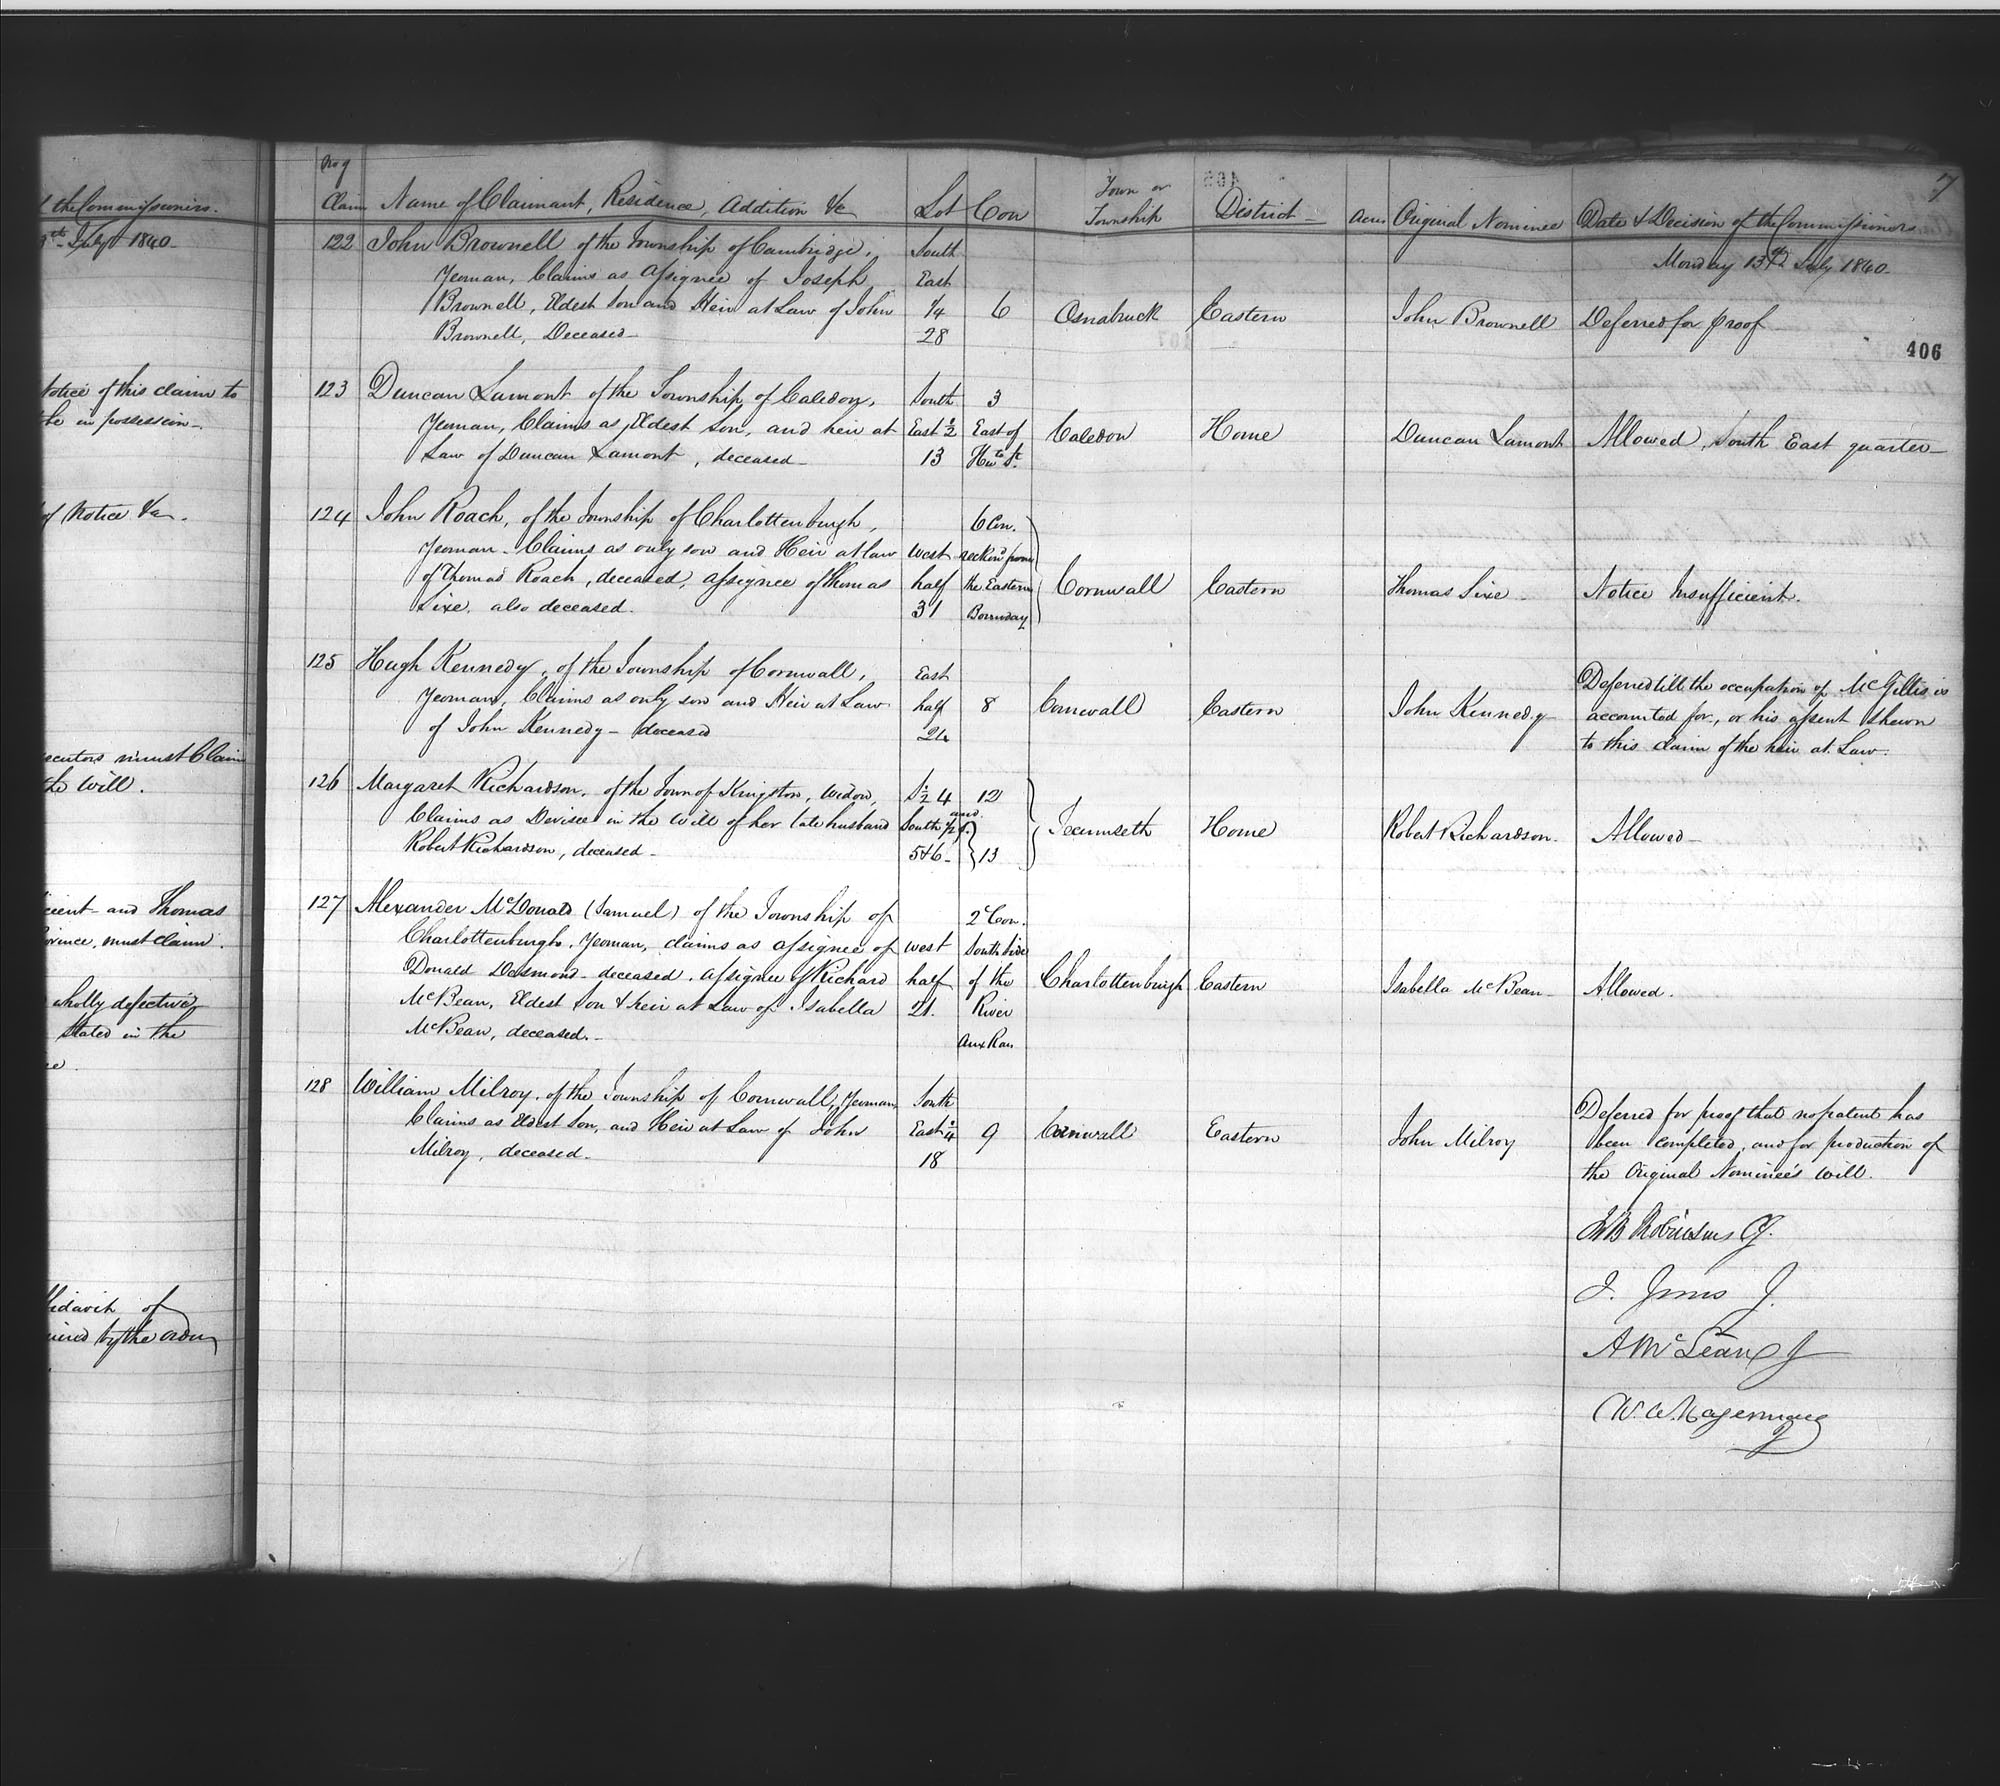 t the Commissioners.
3th July 1840
Notice of this claim to
be in possession.
of Notice &c.
ecutors must Claim
the Will.
cient and Thomas
ovince, must claim.
wholly defective,
stated in the
ce.
fidavit of
uired by the order
7
No of
Claim
Name of Claimant, Residence, Addition &c
Lot
Con
Town or
Township
District
Acres
Original Nominee
Date & Decision of the Commissioners
Monday 13th July 1840
406
122
John Brownell of the Township of Cambridge,
Yeoman, Claims as Assignee of Joseph
Brownell, Eldest Son and Heir at Law of John
Brownell, Deceased
South
East
1/4
28
6
Osnabruck
Eastern
John Brownell
Deferred for proof
123
Duncan Lamont of the Township of Caledon,
Yeoman, Claims as Eldest Son, and heir at
Law of Duncan Lamont, deceased
South
East 1/2
13
3
East of
Huto St.
Caledon
Home
Duncan Lamont
Allowed, South East quarter
124
John Roach, of the Township of Charlottenburgh,
Yeoman. Claims as only son and Heir at law
of Thomas Roach, deceased, assignee of Thomas
Sixe, also deceased.
West
half
31
6 Con.
reckond from
the Eastern
Bounday
Cornwall
Eastern
Thomas Sixe
Notice Insufficient.
125
Hugh Kennedy, of the Township of Cornwall,
Yeoman, Claims as only son and Heir at Law
of John Kennedy deceased
East
half
24
8
Cornwall
Eastern
John Kennedy
Deferred till the occupation of McGillis is
accounted for, or his assent shewn
to this claim of the heir at Law.
126
Margaret Richardson, of the Town of Kingston, Widow,
Claims as Devisee in the Will of her late husband
Robert Richardson, deceased
S 1/2 4
and
South 1/2 s.
5 & 6
12
13
Tecumseth
Home
Robert Richardson.
Allowed
127
Alexander McDonald (Samuel) of the Township of
Charlottenburgh, Yeoman, claims as assignee of
Donald Desmond deceased, assignee of Richard
McBean, Eldest Son & heir at Law of Isabella
McBean, deceased.
West
half
21.
2d Con.
South Side
of the
River
Aux Rais
Charlottenburgh
Eastern
Isabella McBean
Allowed.
128
William Milroy, of the Township of Cornwall, Yeoman,
Claims as Eldest Son, and Heir at Law of John
Milroy, deceased.
South
East 1/4
18
9
Cornwall
Eastern
John Milroy
Deferred for proof that no patent has
been completed, and for production of
the Original Nominee's Will.
J B Robinson CJ.
J. Jones J.
A McLean J
C. A. Hagerman
J